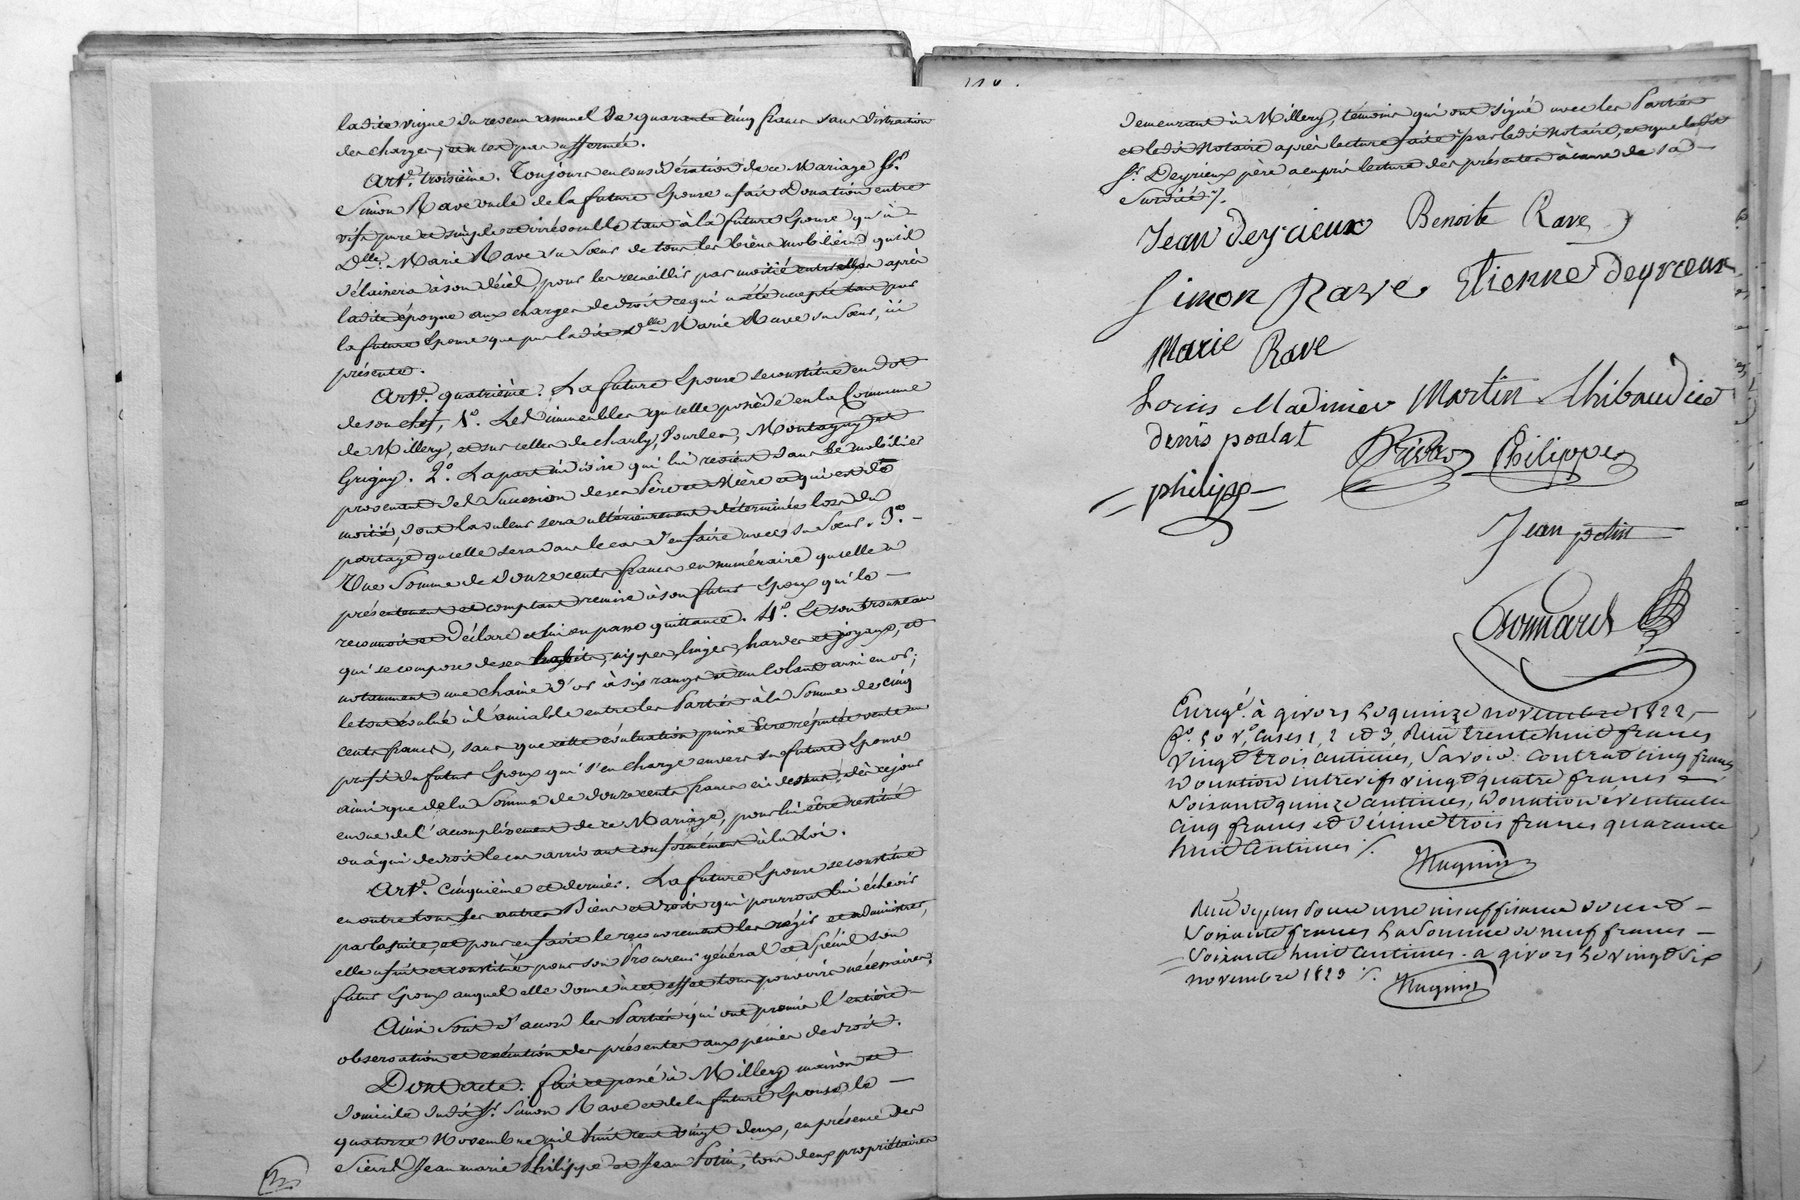 ladite vigne du revenu annuel de quarante cinq francs sans distraction
des charges, et n'est pas affermée.
Art.e troisième. Toujours en considération de ce Mariage Sr.
Simon Rave oncle de la future Epouse a fait Donation entre
vifs pure et simple et irrévocable tant à la future Epouse qu'à
Dlle. Marie Rave sa Sœur de tous les biens mobiliers qu'il
délaissera à son décès, pour les recueillir par moitié entr'elles après
ladite époque aux charges de droit ce qui a été accepté tant par
la future Epouse que par ladite Dlle Marie Rave sa Sœur, ici
présente.
Art.e quatrième. La future Epouse se constitue en dot
de son chef, 1.o Les immeubles qu'elle possède en la Commune
de Millery, et sur celles de Charly, Vourles, Montagny et
Grigny. 2.o La part indivise qui lui revient dans le mobilier
provenant de la Succession de ses Père et Mère et qui est de
moitié, dont la valeur sera ultérieurement déterminée lors du
partage qu'elle sera dans le cas d'en faire avec sa Sœur. 3.o
Une Somme de douze cents francs en numéraire qu'elle a
présentement et comptant remise à son futur Epoux qui le
reconnoit et Déclare et lui en passe quittance. 4.o Et son trousseau
qui se compose de ses habits, nippes, linges, hardes et joyaux, et
notamment une chaine d'or à six rangs et un Colant aussi en or;
le tout évalué à l'amiable entre les Parties à la Somme de cinq
cents francs, sans que cette évaluation puisse être réputée vente au
profit du futur Epoux qui s'en charge envers sa future Epouse
ainsi que de la Somme de douze cents francs ci dessus, dès ce jour
en vue de l'accomplissement de ce Mariage, pour lui être restitué
ou à qui de droit le cas arrivant conformément à la Loi.
Art.e cinquième et dernier. La future Epouse se constitue
en outre tous les autres Biens et droits qui pourront lui échevir
par la suite, et pour en faire le recouvrement les régir et administrer,
elle a fait et constitué pour son Procureur général et Spécial son
futur Epoux auquel elle donne à cet effet tous pouvoirs nécessaires.
Ainsi sont d'accord les Parties qui ont promis l'entière
observation et exécution des présentes aux peines de droit.
Dont acte. fait et passé à Millery maison et
domicile dudit Sr. Simon Rave et de la future Epouse le
quatorze Novembre mil huit cent vingt deux, en présence des
Sieurs Jean marie Philippe et Jean Potin, tous deux propriétaires
demeurant à Millery, témoins qui ont signé avec les Parties
et ledit Notaire après lecture faite par ledit Notaire, et que ledit
Sr. Deyrieux père a en pris lecture des présentes à cause de sa
surdité ./.
Jean deyrieux Benoite Rave
Simon Rave Etienne deyrieux
Marie Rave
Louis Madinier Martin Thibaudier
denis poulat
philipp Philippe
Jean potin
Bonnard
Enregé. à givors le quinze novembre 1822,
fo. 50 vo, cases 1, 2 et 3 Reçu trente huit francs
vingt trois centimes, Savoir: contrat cinq francs
Donation entrevifs vingt quatre francs
soixante quinze centimes, Donation éventuelle
cinq francs et décime trois francs quarante
huit centimes ./.
Reçu de plus pour une insuffisance de cent
soixante francs la somme de neuf francs
soixante huit centimes. a givors le vingt six
novembre 1823 ./.